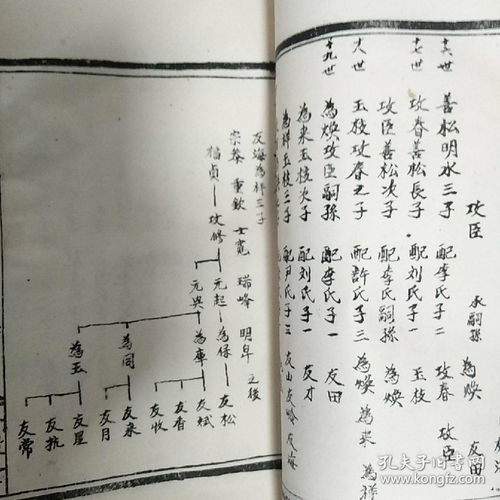 攻臣 承嗣孫 為煥 友田
十六世 善松明水三子 配李氏子二 攻春 攻臣
十七世 攻春善松長子 配刘氏子一 玉枝
攻臣善松次子 配李氏嗣孫 為煥
十八世 玉枝攻春之子 配許氏子三 為煥 為来 為祥
十九世 為煥攻臣嗣孫 配李氏子一 友田
為来玉枝次子 配刘氏子一 友才
為祥玉枝三子 配尹氏子三 友山友岭友海
友海為祥三子
崇奉 重欽 士寬 瑞峰 明皐 之後
福貞 攻修 元起 為保 友松
元興 為庫 友斌
友香
友收
為同 友来
友月
為玉 友星
友抗
友常
孔夫子旧书网
www.kongfz.com